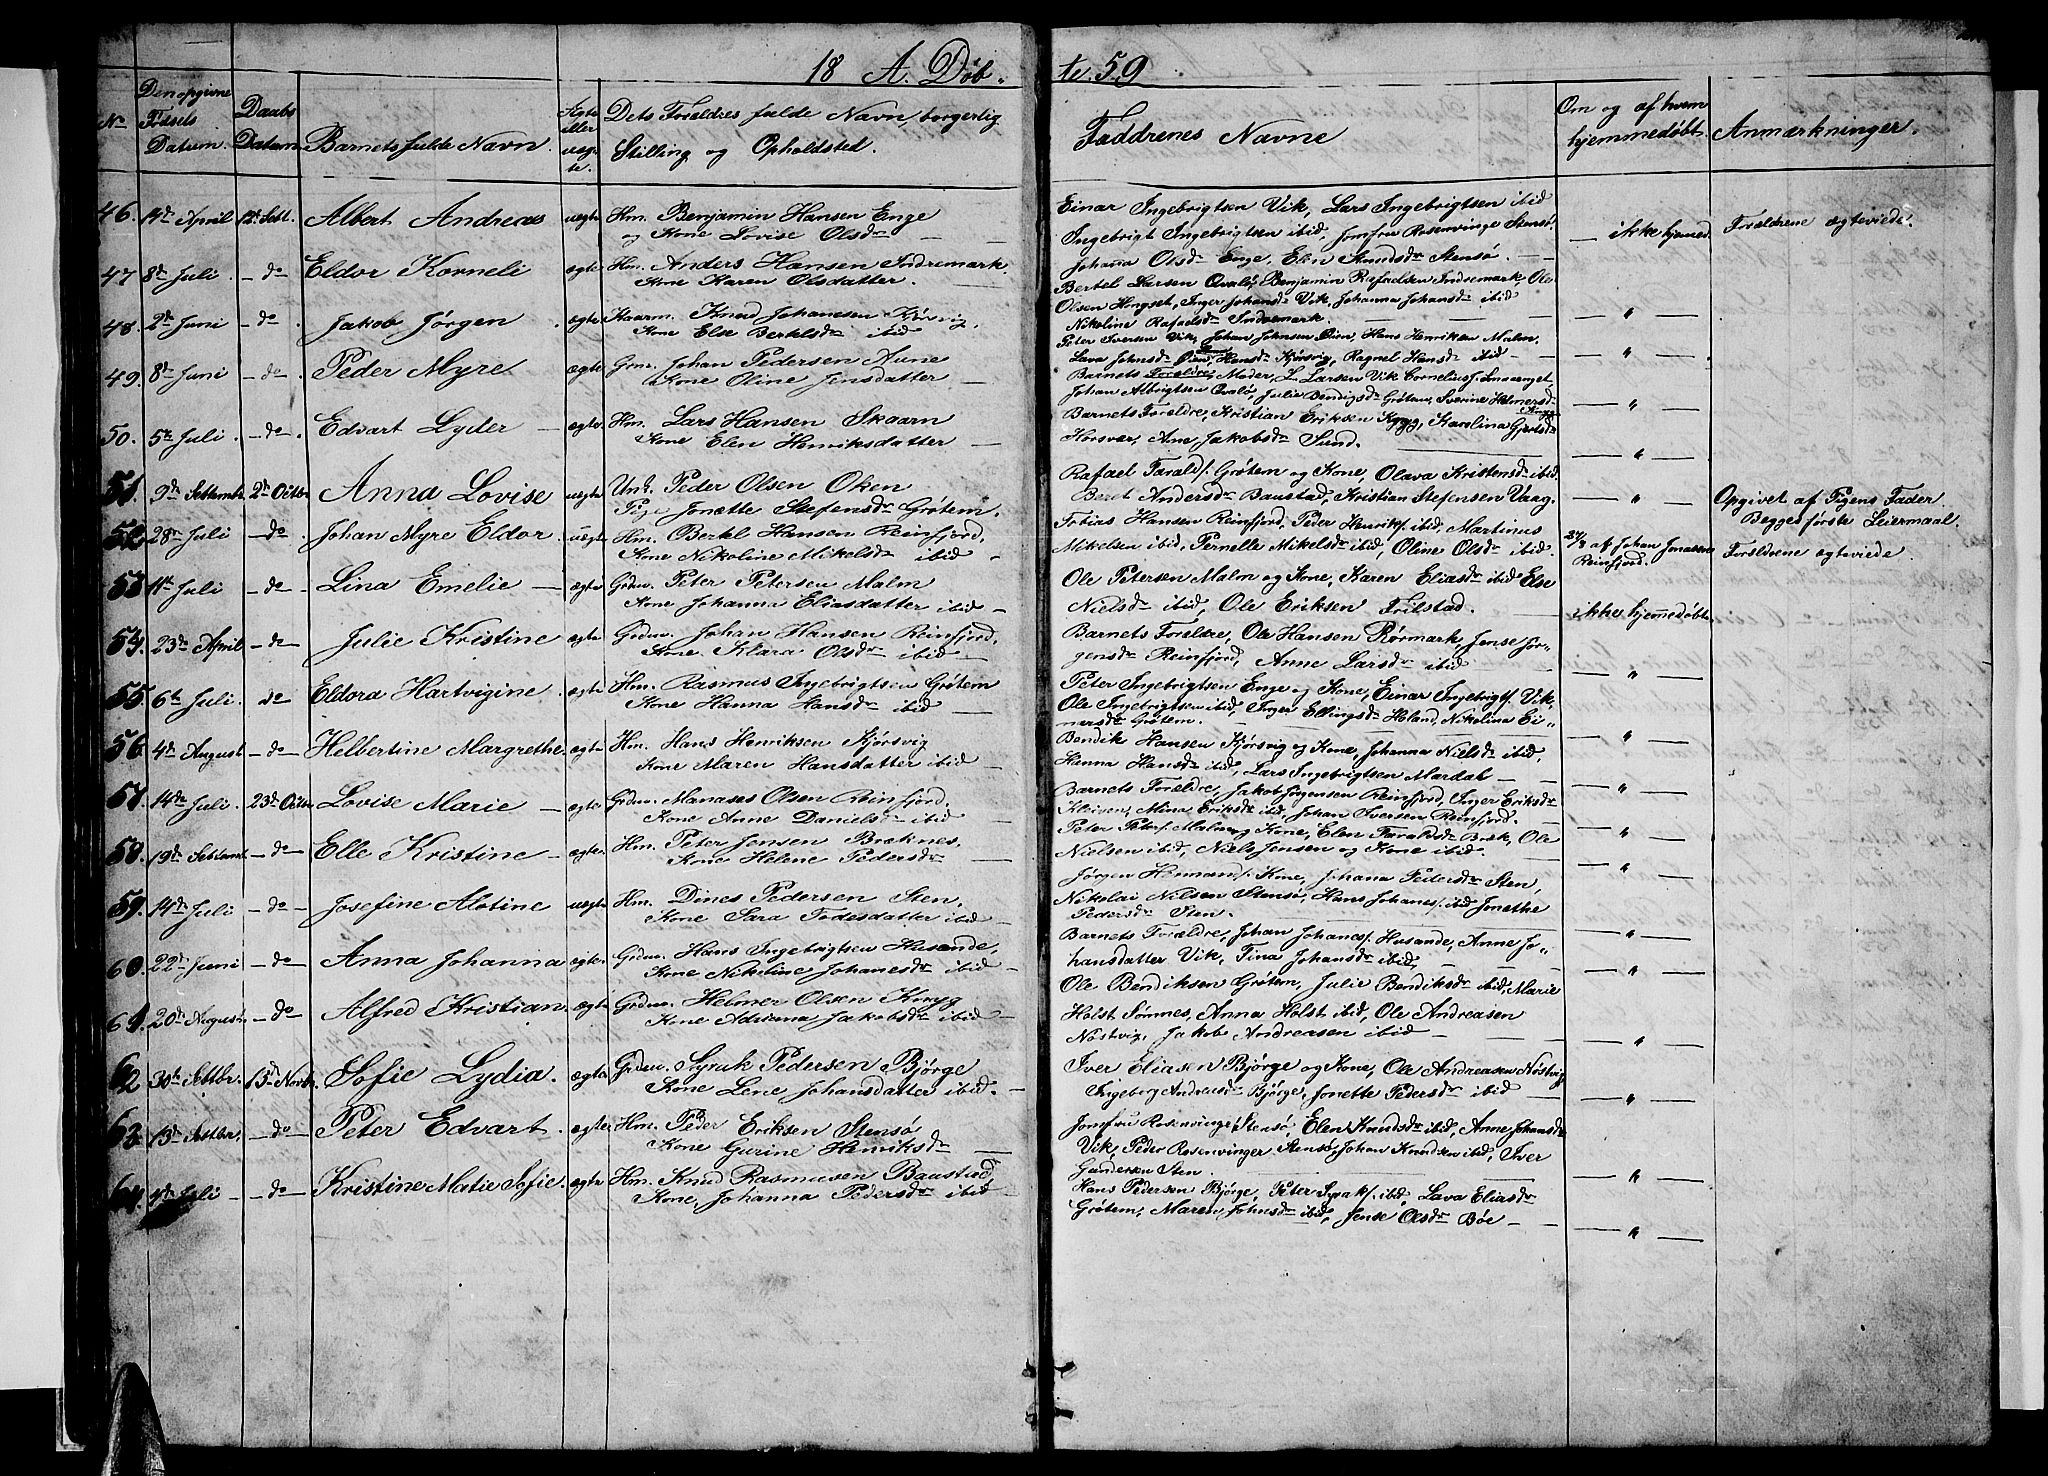 18 A. Døb-
te. 59
No
Den opgivne Fødsels Datum.
Daabs Datum.
Barnets fulde Navn.
Ægte eller uægte.
Dets Forældres fulde Navn, borgerlig Stilling og Opholdsted.
Faddrenes Navne
Om og af hvem hjemmedøbt.
Anmærkninger.
46. April 12t Setb. Albert Andreas uægte Hm. Benjamin Hansen Enge
og Kone Lovise Olsdr
Einar Ingebrigtsen Vik, Lars Ingebrigtsen ibid
Ingebrigt Ingebrigtsen ibid, Jomfru Rosenvinge Stensø,
Johanna Olsdr Enge, Elen Knudsdr Stensø.
ikke hjemmed. Forældrene ægteviede.
47 8de Juli do Eldor Korneli ægte Hm. Anders Hansen Indremark
Kone Karen Olsdatter.
Bertel Larsen Qvalø, Benjamin Rafaelsen Indremark, Ole
Olsen Hongset, Inger Johansdr Vik, Johanna Johansdr ibid
Nikoline Rafaelsdr Indremark
"
48. 2n Juni do Jakob Jørgen ægte Kaarm. Knud Johannesen Kjørsvig,
Kone Else Bertelsdr ibid
Peter Iversen Vik, Johan Johnsen Øien, Hans Henriksen Malm,
Lava Johnsdr Øien, Hansdr Kjørsvig, Ragnel Hansdr ibid
"
49. 8de Juni do Peder Myre ægte Grm. Johan Pedersen Aune
Kone Oline Jensdatter
Barnets Forældre, Moder, L. Larsen Vik
Johan Albrigtsen Qvalø, Julia Bendigsdr Grøtem, Sverine Helmersdr
Knyg
"
50. 5te Juli do Edvart Lyder ægte Hm. Lars Hansen Skaarn
Kone Elen Henriksdatter
Barnets Forældre, Kristian Eriksen Kyg, Karolina Gjertsdr
Horsvær, Ane Jakobsdr Sund.
"
51. 9de Settembr 2n Octbr Anna Lovise uægte Unk. Peder Olsen Oken
Pige Jonette Stefensdr Grøtem.
Rafael Tarald. Grøtem og Kone, Olava Kristensdr ibid
Beret Andersdr Baustad, Kristian Stefensen Vaag.
"
Opgivet af Pigens Fader
Begges første Leiermaal
52. 28n Juli do Johan Myre Eldor uægte Hm. Bertel Hansen Reinfjord,
Kone Nikoline Mikelsdr ibid
Tobias Hansen Reinfjord, Peder Henriks. ibid, Martinus
Mikelsen ibid, Pernelle Mikelsdr ibid, Oline Olsdr ibid
af Johan Jonassen Reinfjord.
Forældrene ægteviede.
53 11te Juli do Lina Emelie ægte Grdm. Peter Petersen Malm
Kone Johanna Eliasdatter ibid
Ole Petersen Malm og Kone, Karen Eliasdr ibid Else
Nielsdr ibid, Ole Eriksen Trilstad.
ikke hjemmedøbt.
54. 23de April do Julie Kristine ægte Grdm. Johan Hansen Reinfjord,
Kone Klara Olsdr ibid
Barnets Forældre, Ole Hansen Rørmark, Jense Jør-
gensdr Reinfjord, Anne Larsdr ibid
"
55. 6te Juli do Eldora Hartvigine ægte Hm. Rasmus Ingebrigtsen Grøtem
Kone Hanna Hansdr ibid
Peter Ingebrigtsen Enge og Kone, Einar Ingebrigts. Vik,
Ole Ingebrigtsen ibid, Inger Ellingsdr Høland, Nikolina Ei-
narsdr Grøtem.
"
56. 4de August do Helbertine Margrethe ægte Hm. Hans Henriksen Kjørsvig
Kone Maren Hansdatter ibid
Bendik Hansen Kjørsvig og Kone, Johanna Nielsdr ibid,
Hanna Hansdr ibid, Lars Ingebrigtsen Mardal
"
57. 14de Juli 23de Octbr Lovise Marie ægte Grdm. Manases Olsen Reinfjord,
Kone Anne Danielsdr ibid
Barnets Forældre, Jakob Jørgensen Reinfjord, Inger Eriksdr
Kleiven, Mina Eriksdr ibid, Johan Iversen Reinfjord.
"
58. 19de Settemb do Elle Kristine ægte Hm. Peter Jensen Bræknes,
Kone Helene Pedersdr
Peter Peters. Malm og Kone, Elen Taraldsdr Bræk, Ole
Nielsen ibid, Niels Jensen og Kone ibid.
"
59. 14de Juli do Josefine Alotine uægte Hm. Dines Pedersen Sten,
Kone Sara Todesdatter ibid
Jørgen Hermands. Kone, Johana Pedersdr Sten,
Nikolai Nilsen Stensø, Hans Johanes. ibid Jonethe
Pedersdr Sten.
"
60. 22de Juni do Anna Johanna ægte Grdm. Hans Ingebrigtsen Husande,
Kone Nikoline Johanesdr ibid
Barnets Forældre, Johan Johanes. Husande, Anne Jo-
hansdatter Vik, Tina Johansdr ibid,
"
61. 20de August do Alfred Kristian ægte Grdm. Helmer Olsen Knyg
Kone Adriana Jakobsdr ibid
Ole Bendiksen Grøtem, Julie Bendiksdr ibid, Marie
Holst Sømnes, Anna Holst ibid, Ole Andreasen
Nøstvig, Jakob Andreasen ibid
"
62 30te Settbr. 13de Novbr. Sofie Lydia. ægte Grdm. Syrak Pedersen Bjørge
Kone Lene Johansdatter ibid.
Iver Eliasen Bjørge og Kone, Ole Andreasen Nøstvig
Ingeborg Andreasdr Bjørge, Jonette Pedersdr ibid
"
63. 13de Settbr. do Peter Edvart ægte Hm. Peder Eriksen Stensø
Kone Gurine Henriksdr
Jomfru Rosenvinge Stensø, Elen Knudsdr ibid, Anne Johansdr
Vik, Peder Rosenvinger Stensø, Johan Knudsen ibid, Iver
Gundersen Sten
"
64. Juli do Kristine Matie Sofie ægte Hm. Knud Rasmusen Baustad,
Kone, Johanna Pedersdr ibid
Hans Pedersen Bjørge, Peter Syraks. ibid, Lava Eliasdr
Grøtem, Maren Johnsdr ibid, Jense Olsdr Bøe
"